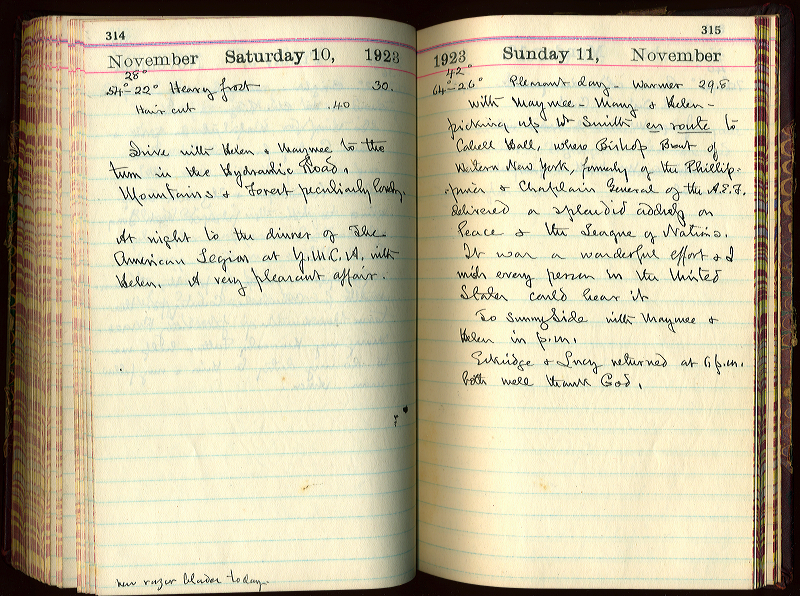 314
November Saturday 10, 1923
28°
54°-22° Heavy frost 30.
Hair cut .40
Drive with Helen & Maymee to the
turn in the Hydraulic Road.
Mountains & Forest peculiarly lovely.
At night to the dinner of the
American Legion at Y.M.C.A. with
Helen. A very pleasant affair.
new razor blades to-day.
315
1923 Sunday 11, November
42°
64°-26° Pleasant day - Warmer 29.8
with Maymee - Mary & Helen -
picking up Wt Smith en route to
Cabell Hall, where Bishop Brent of
Western New York, formerly of the Phillip-
-pines & Chaplain General of the A.E.F.
delivered a splendid address on
Peace & the League of Nations.
It was a wonderful effort & I
wish every person in the United
States could hear it
To Sunny Side with Maymee &
Helen in p.m.
Eskridge & Lucy returned at 6 p.m.
both well thank God.